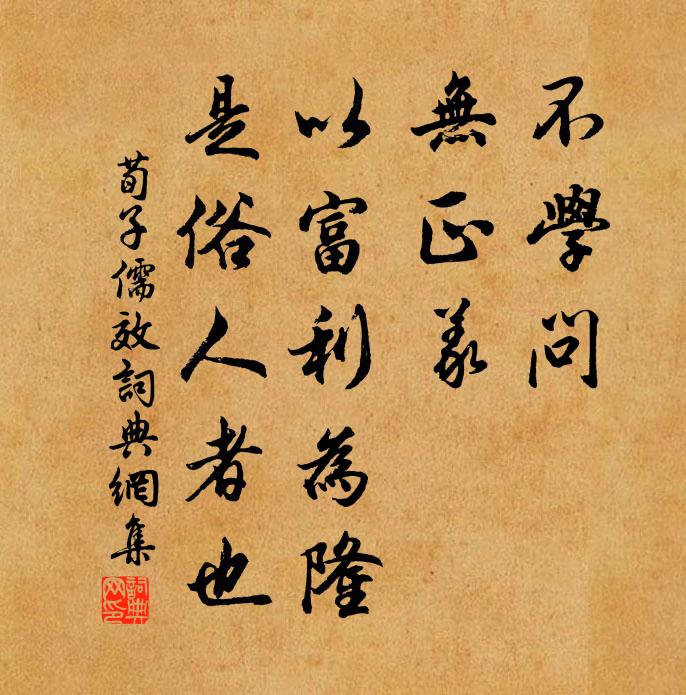 不學問
無正義
以富利為隆
是俗人者也
荀子儒效詞典網集
詞典網印